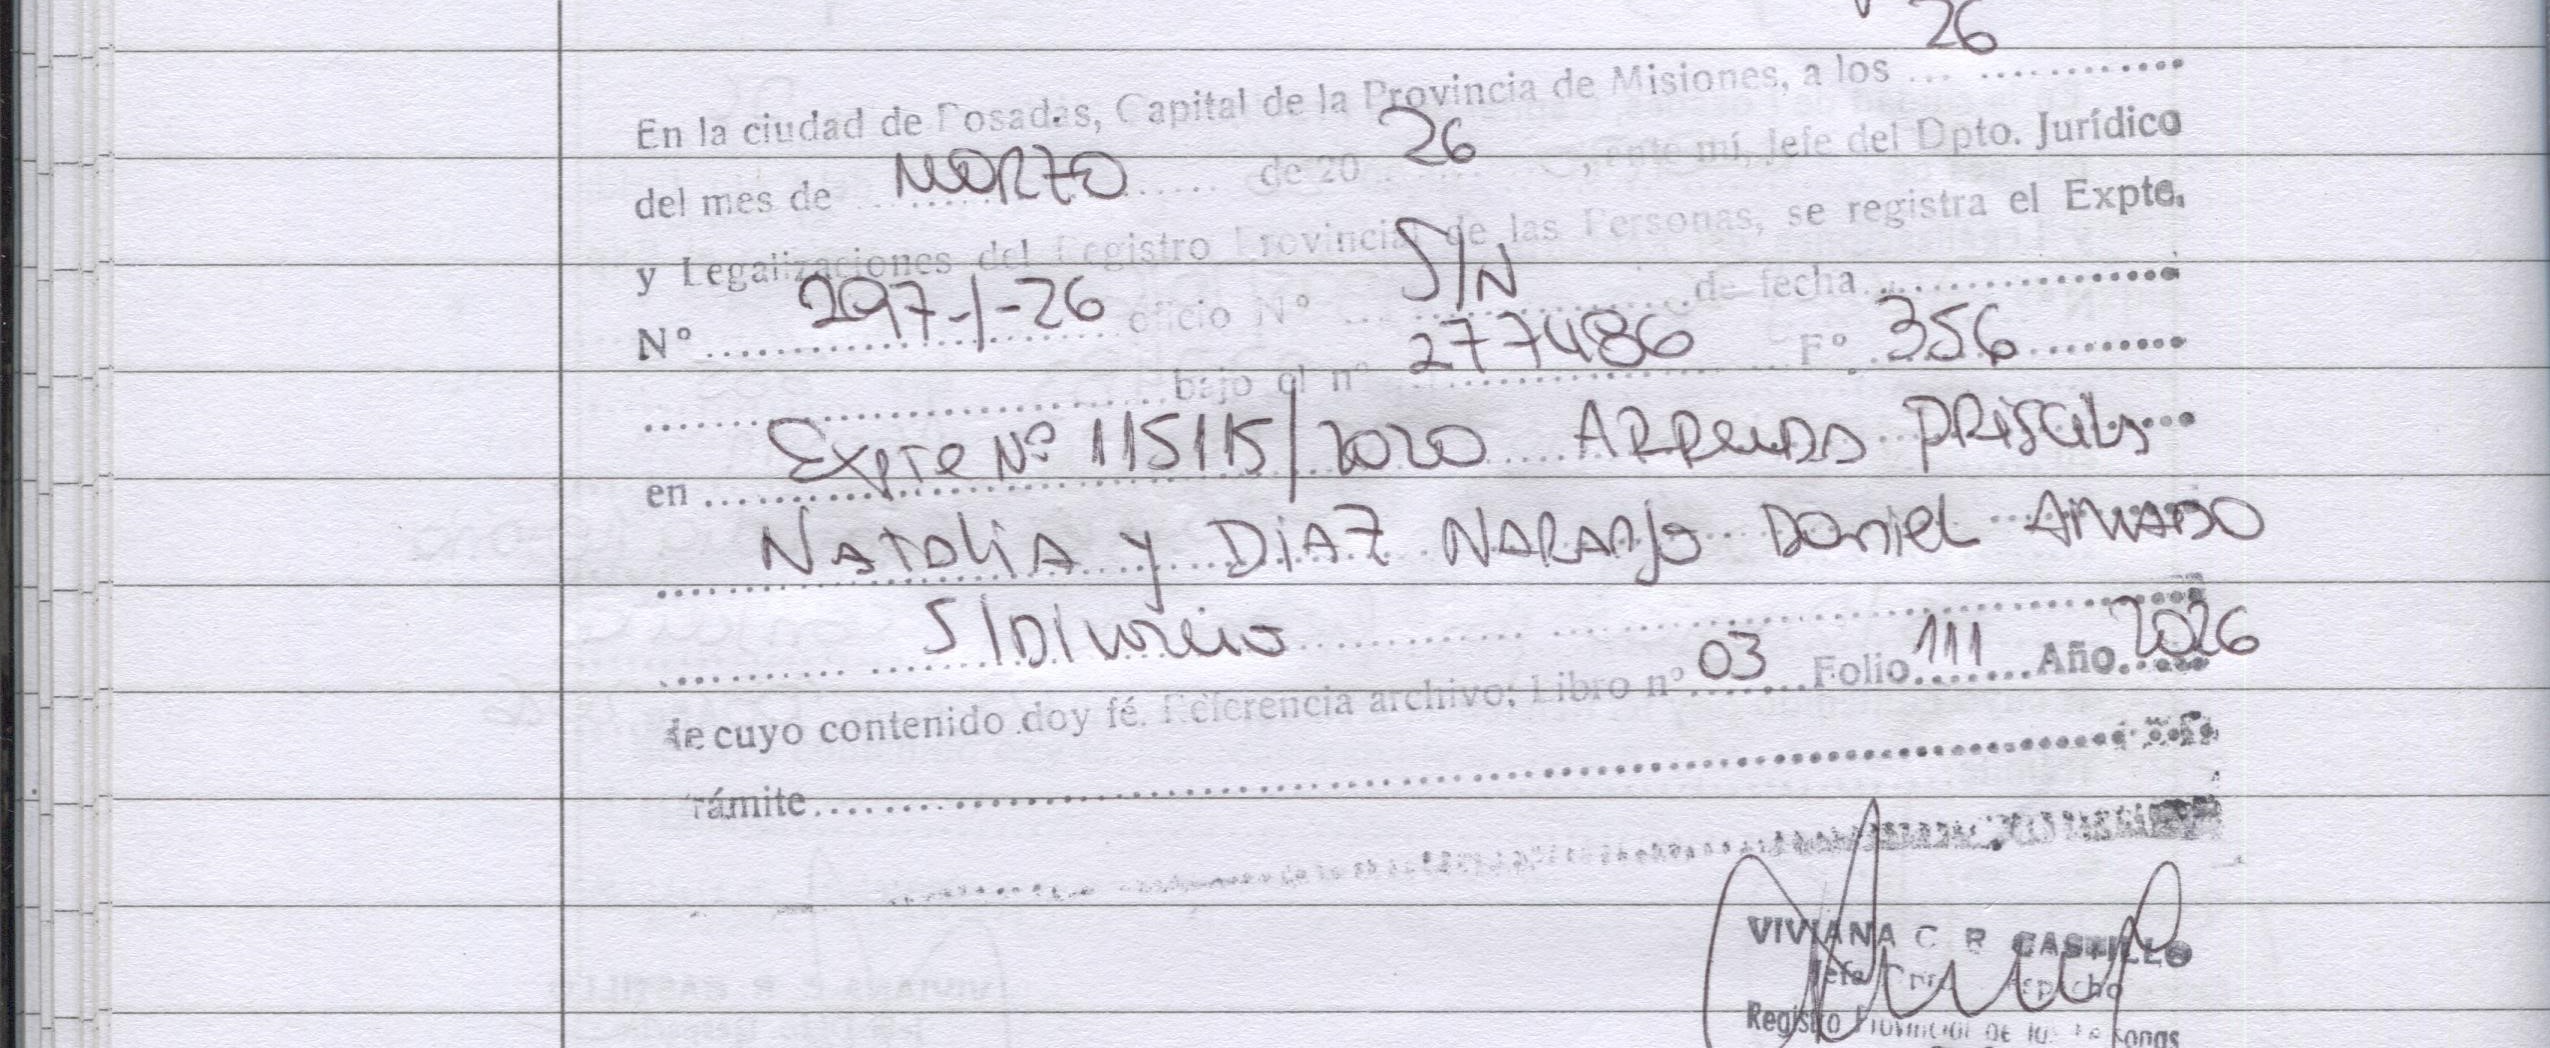 26
En la ciudad de Posadas, Capital de la Provincia de Misiones, a los ...............
del mes de MARZO de 20 26, ante mí, Jefe del Dpto. Jurídico
y Legalizaciones del Registro Provincial de las Personas, se registra el Expte.
Nº 297-1-26 oficio Nº S/N de fecha
bajo el nº 277486 Fº 356
en Expte Nº 115115/2020 ARRIUDA PRISCILA
NATALIA y DIAZ NARANJO DANIEL
S/DIVORCIO
de cuyo contenido doy fé. Referencia archivo: Libro nº 03 Folio 111 Año 2026
rámite
VIVIANA C R CASTILLO
Jefa Despacho
Registro Provincial de las Personas